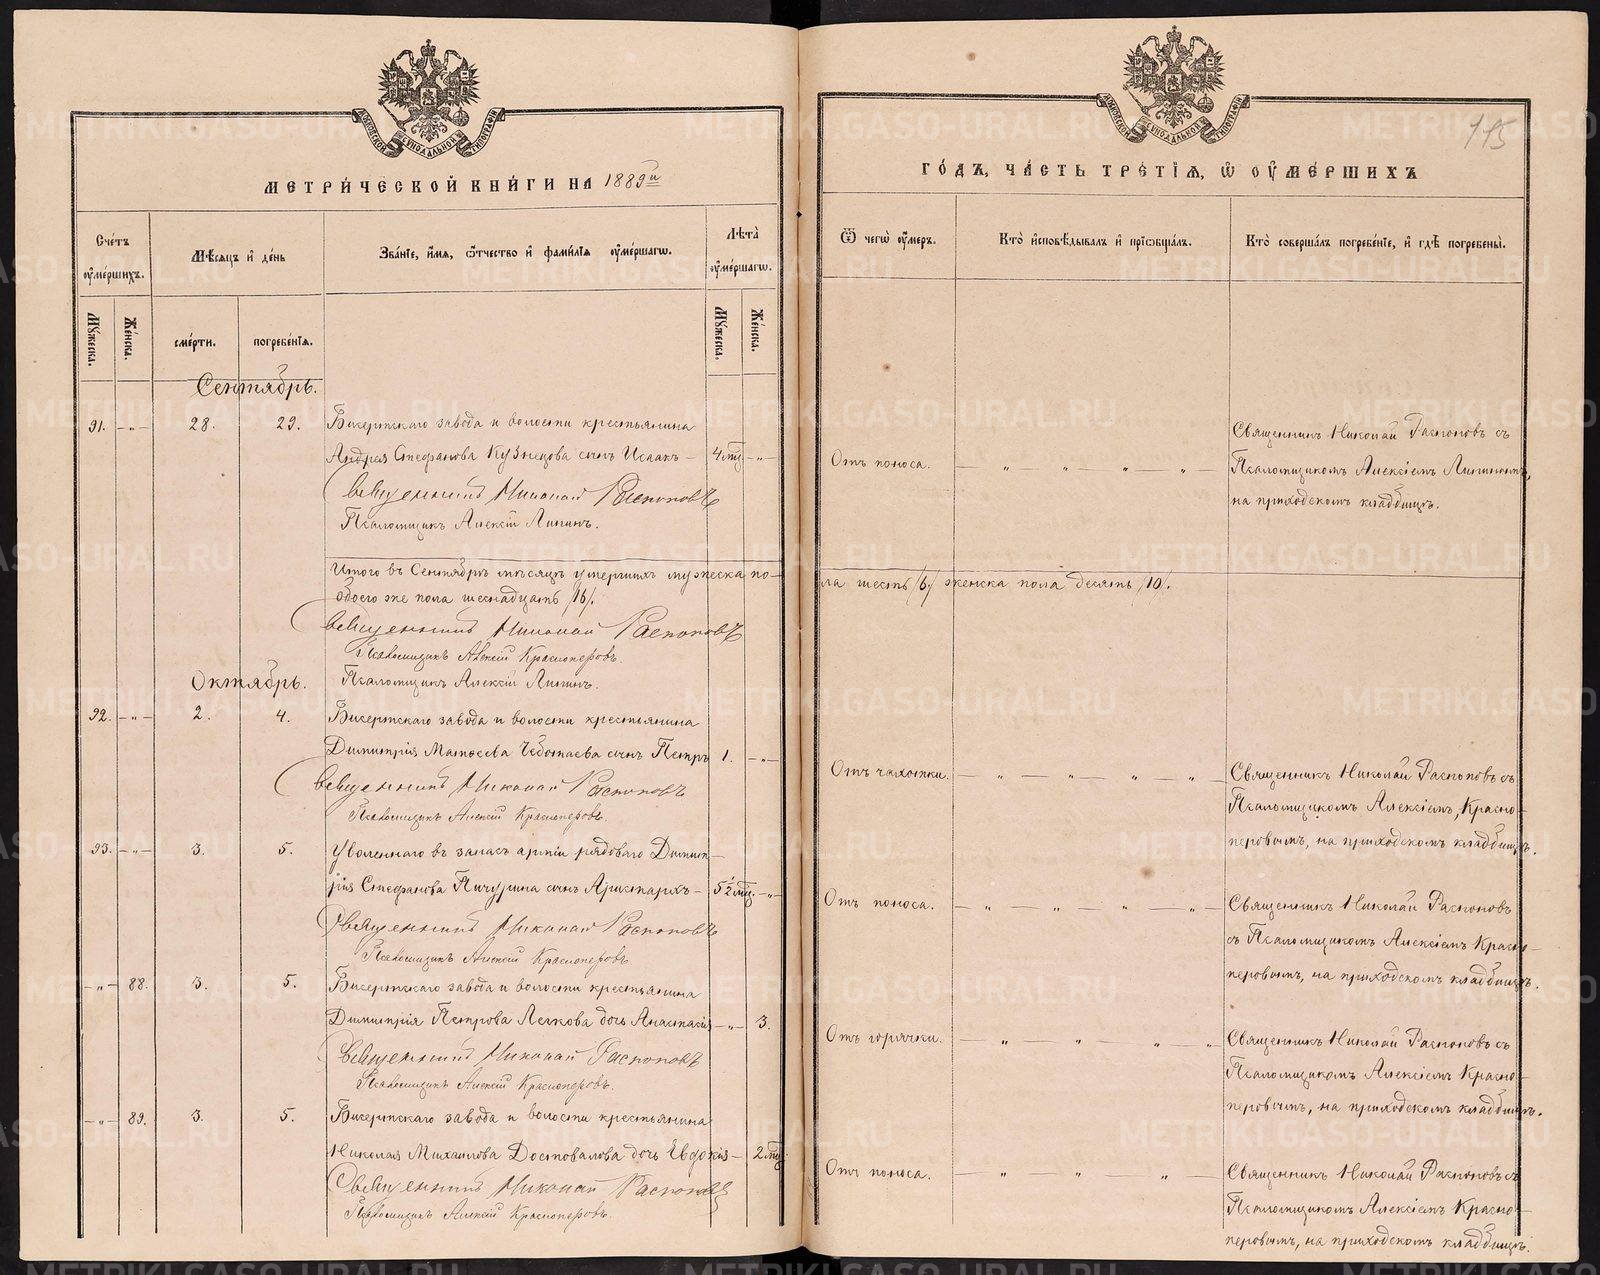 МОСКОВСКОЙ СѴНОДАЛЬНОЙ ТИПОГРАФІИ
МЕТРИ́ЧЕСКОЙ КНИ́ГИ НА 1889й
Сче́тъ ᲂу҆ме́ршихъ.
Мѣ́сяцъ и҆ де́нь
Зва́нїе, и҆́мя, ѻ҆́тчество и҆ фами́лїя ᲂу҆ме́ршагѡ.
Лѣ́та ᲂу҆ме́ршагѡ.
Мꙋ́жеска.
Же́нска.
сме́рти.
погребе́нїя.
Мꙋ́жеска.
Же́нска.
Сентябрь.
91. — „ — 28. 29. Бисертскаго завода и волости крестьянина
Андрея Стефанова Кузнецова сынъ Исаакъ — 4 мц — „ —
Священникъ Николай Распоповъ
Псаломщикъ Алексій Липинъ.
Итого въ Сентябрѣ мѣсяцѣ умершихъ мужеска по-
обоего же пола шеснадцать /16/.
Священникъ Николай Распоповъ
Псаломщикъ Алексій Красноперовъ.
Псаломщикъ Алексій Липинъ.
Октябрь.
92. — „ — 2. 4. Бисертскаго завода и волости крестьянина
Димитрія Матѳеева Чеботаева сынъ Петръ 1. — „ —
Священникъ Николай Распоповъ
Псаломщикъ Алексій Красноперовъ.
93. — „ — 3. 5. Уволеннаго въ запасъ арміи рядоваго Димит-
рія Стефанова Пичугина сынъ Аристархъ — 5½ мц. — „
Священникъ Николай Распоповъ
Псаломщикъ Алексій Красноперовъ
— „ — 88. 3. 5. Бисертскаго завода и волости крестьянина
Димитрія Петрова Легкова дочь Анастасія — „ — 3.
Священникъ Николай Распоповъ
Псаломщикъ Алексій Красноперовъ.
— „ — 89. 3. 5. Бисертскаго завода и волости крестьянина
Николая Михаилова Достовалова дочь Евдокія — 2 мц.
Священникъ Николай Распоповъ
Псаломщикъ Алексій Красноперовъ.
115
МОСКОВСКОЙ СѴНОДАЛЬНОЙ ТИПОГРАФІИ
ГО́ДЪ, ЧА́СТЬ ТРЕ́ТЇѦ, Ѡ҆ ОУ҆МЕ́РШИХЪ
Ѿ чегѡ̀ ᲂу҆́меръ.
Кто̀ и҆сповѣ́дывалъ и҆ прїѡбща́лъ.
Кто̀ соверша́лъ погребе́нїе, и҆ гдѣ̀ погребены̀.
Отъ поноса. — „ — „ — „ — „ —
Священникъ Николай Распоповъ съ
Псаломщикомъ Алексіемъ Липинымъ,
на приходскомъ кладбищѣ.
ла шесть /6/ женска пола десять /10/.
Отъ чахотки. — „ — „ — „ — „ —
Священникъ Николай Распоповъ съ
Псаломщикомъ Алексіемъ Красно-
перовымъ, на приходскомъ кладбищѣ.
Отъ поноса. — „ — „ — „ — „ —
Священникъ Николай Распоповъ
съ Псаломщикомъ Алексіемъ Красно-
перовымъ, на приходскомъ кладбищѣ.
Отъ горячки. — „ — „ — „ — „
Священникъ Николай Распоповъ съ
Псаломщикомъ Алексіемъ Красно-
перовымъ, на приходскомъ кладбищѣ.
Отъ поноса. „ — „ — „ —
Священникъ Николай Распоповъ съ
Псаломщикомъ Алексіемъ Красно-
перовымъ, на приходскомъ кладбищѣ.
METRIKI.GASO-URAL.RU